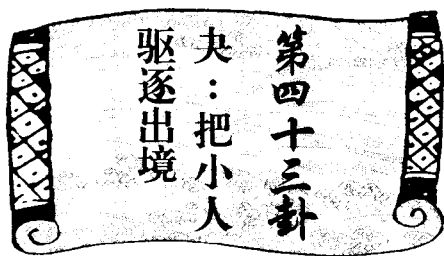 第四十三卦
夬：把小人
驱逐出境